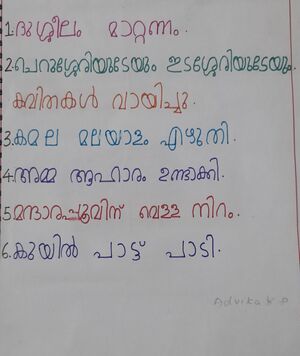 1.ദുശ്ശീലം മാറ്റണം.
2.ചെറുശ്ശേരിയുടേയും ഇടശ്ശേരിയുടേയും
കവിതകൾ വായിച്ചു.
3.കമല മലയാളം എഴുതി.
4.അമ്മ ആഹാരം ഉണ്ടാക്കി.
5.മന്ദാരപ്പൂവിന് വെള്ള നിറം.
6.കുയിൽ പാട്ട് പാടി.
Advika k P